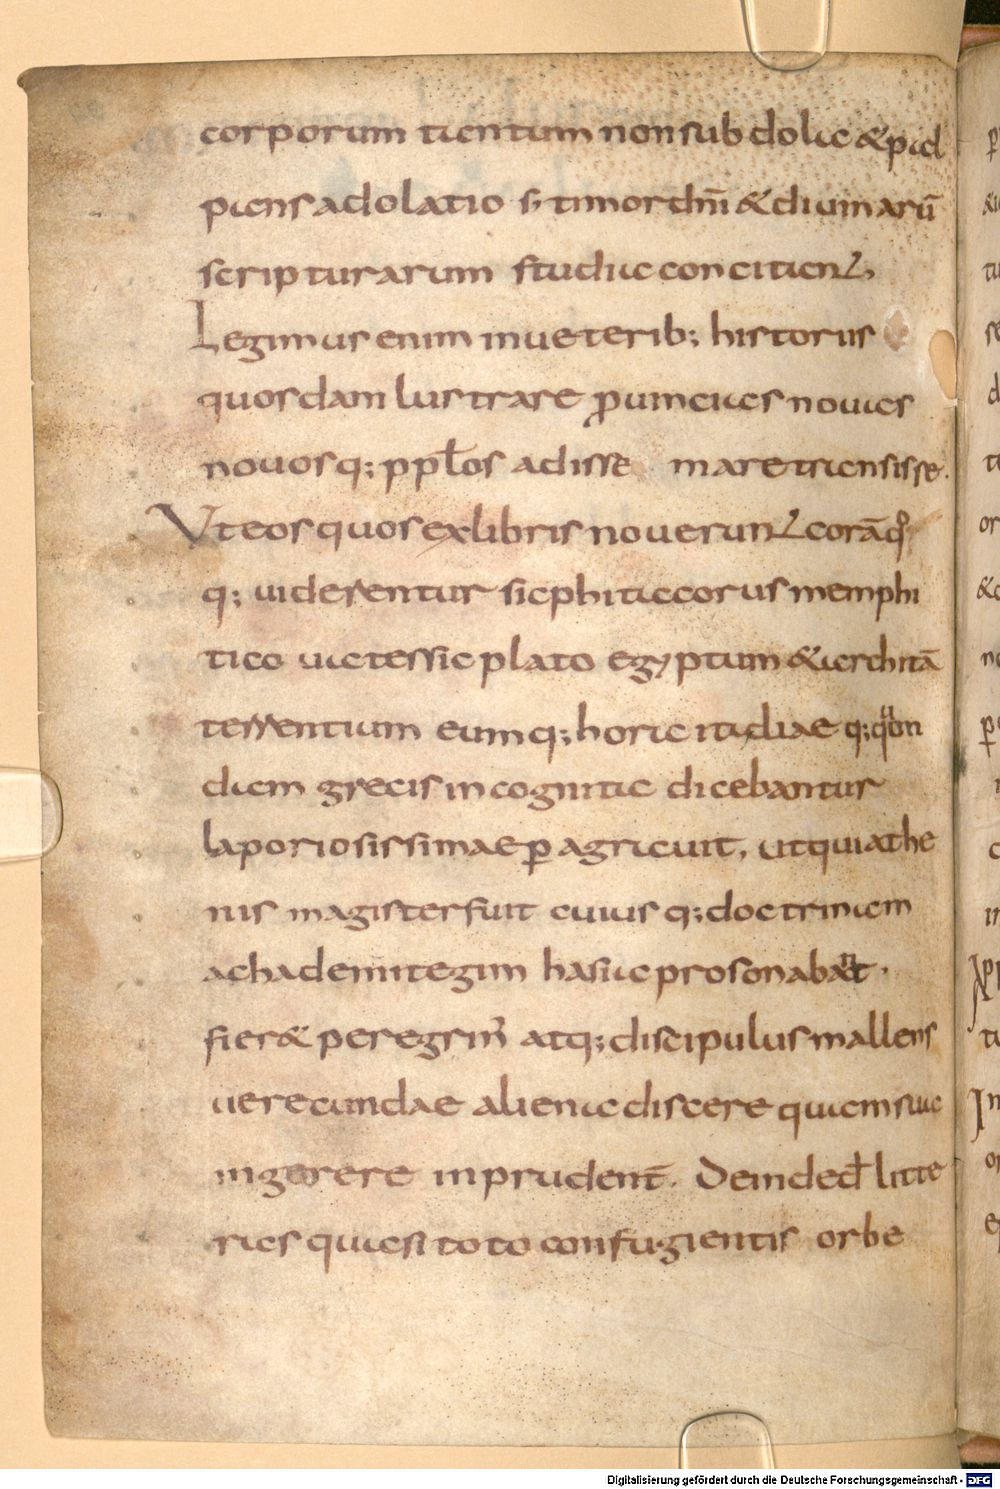 corporum tantum non subdola & pal
pans adolatio s; timor dn̄i & diuinarū
scripturarum studia conciliant,
Legimus enim inueterib; historiis
quosdam lustrare prouincias nouas
nouosq; pplōs adisse maretransisse.
Vteos quos exlibris nouerunt corāq°
q; uiderentur sicphitagorus memphi
tico uatessic plato egyptum & architā
terrentium eumq; hora italiae q; quōn
dam grecis incognita dicebantur
laporiosissimae peragrauit, utquiathe
nis magisterfuit cuius q; doctrinam
achademiaegim hasia prosonabant.
fier& peregrin' atq; discipulus mallens
uerecundae aliena discere quam sua
ingerere inprudent̄. Deindecd̄ litte
ras quasi toto confugientis orbe
Digitalisierung gefördert durch die Deutsche Forschungsgemeinschaft - DFG